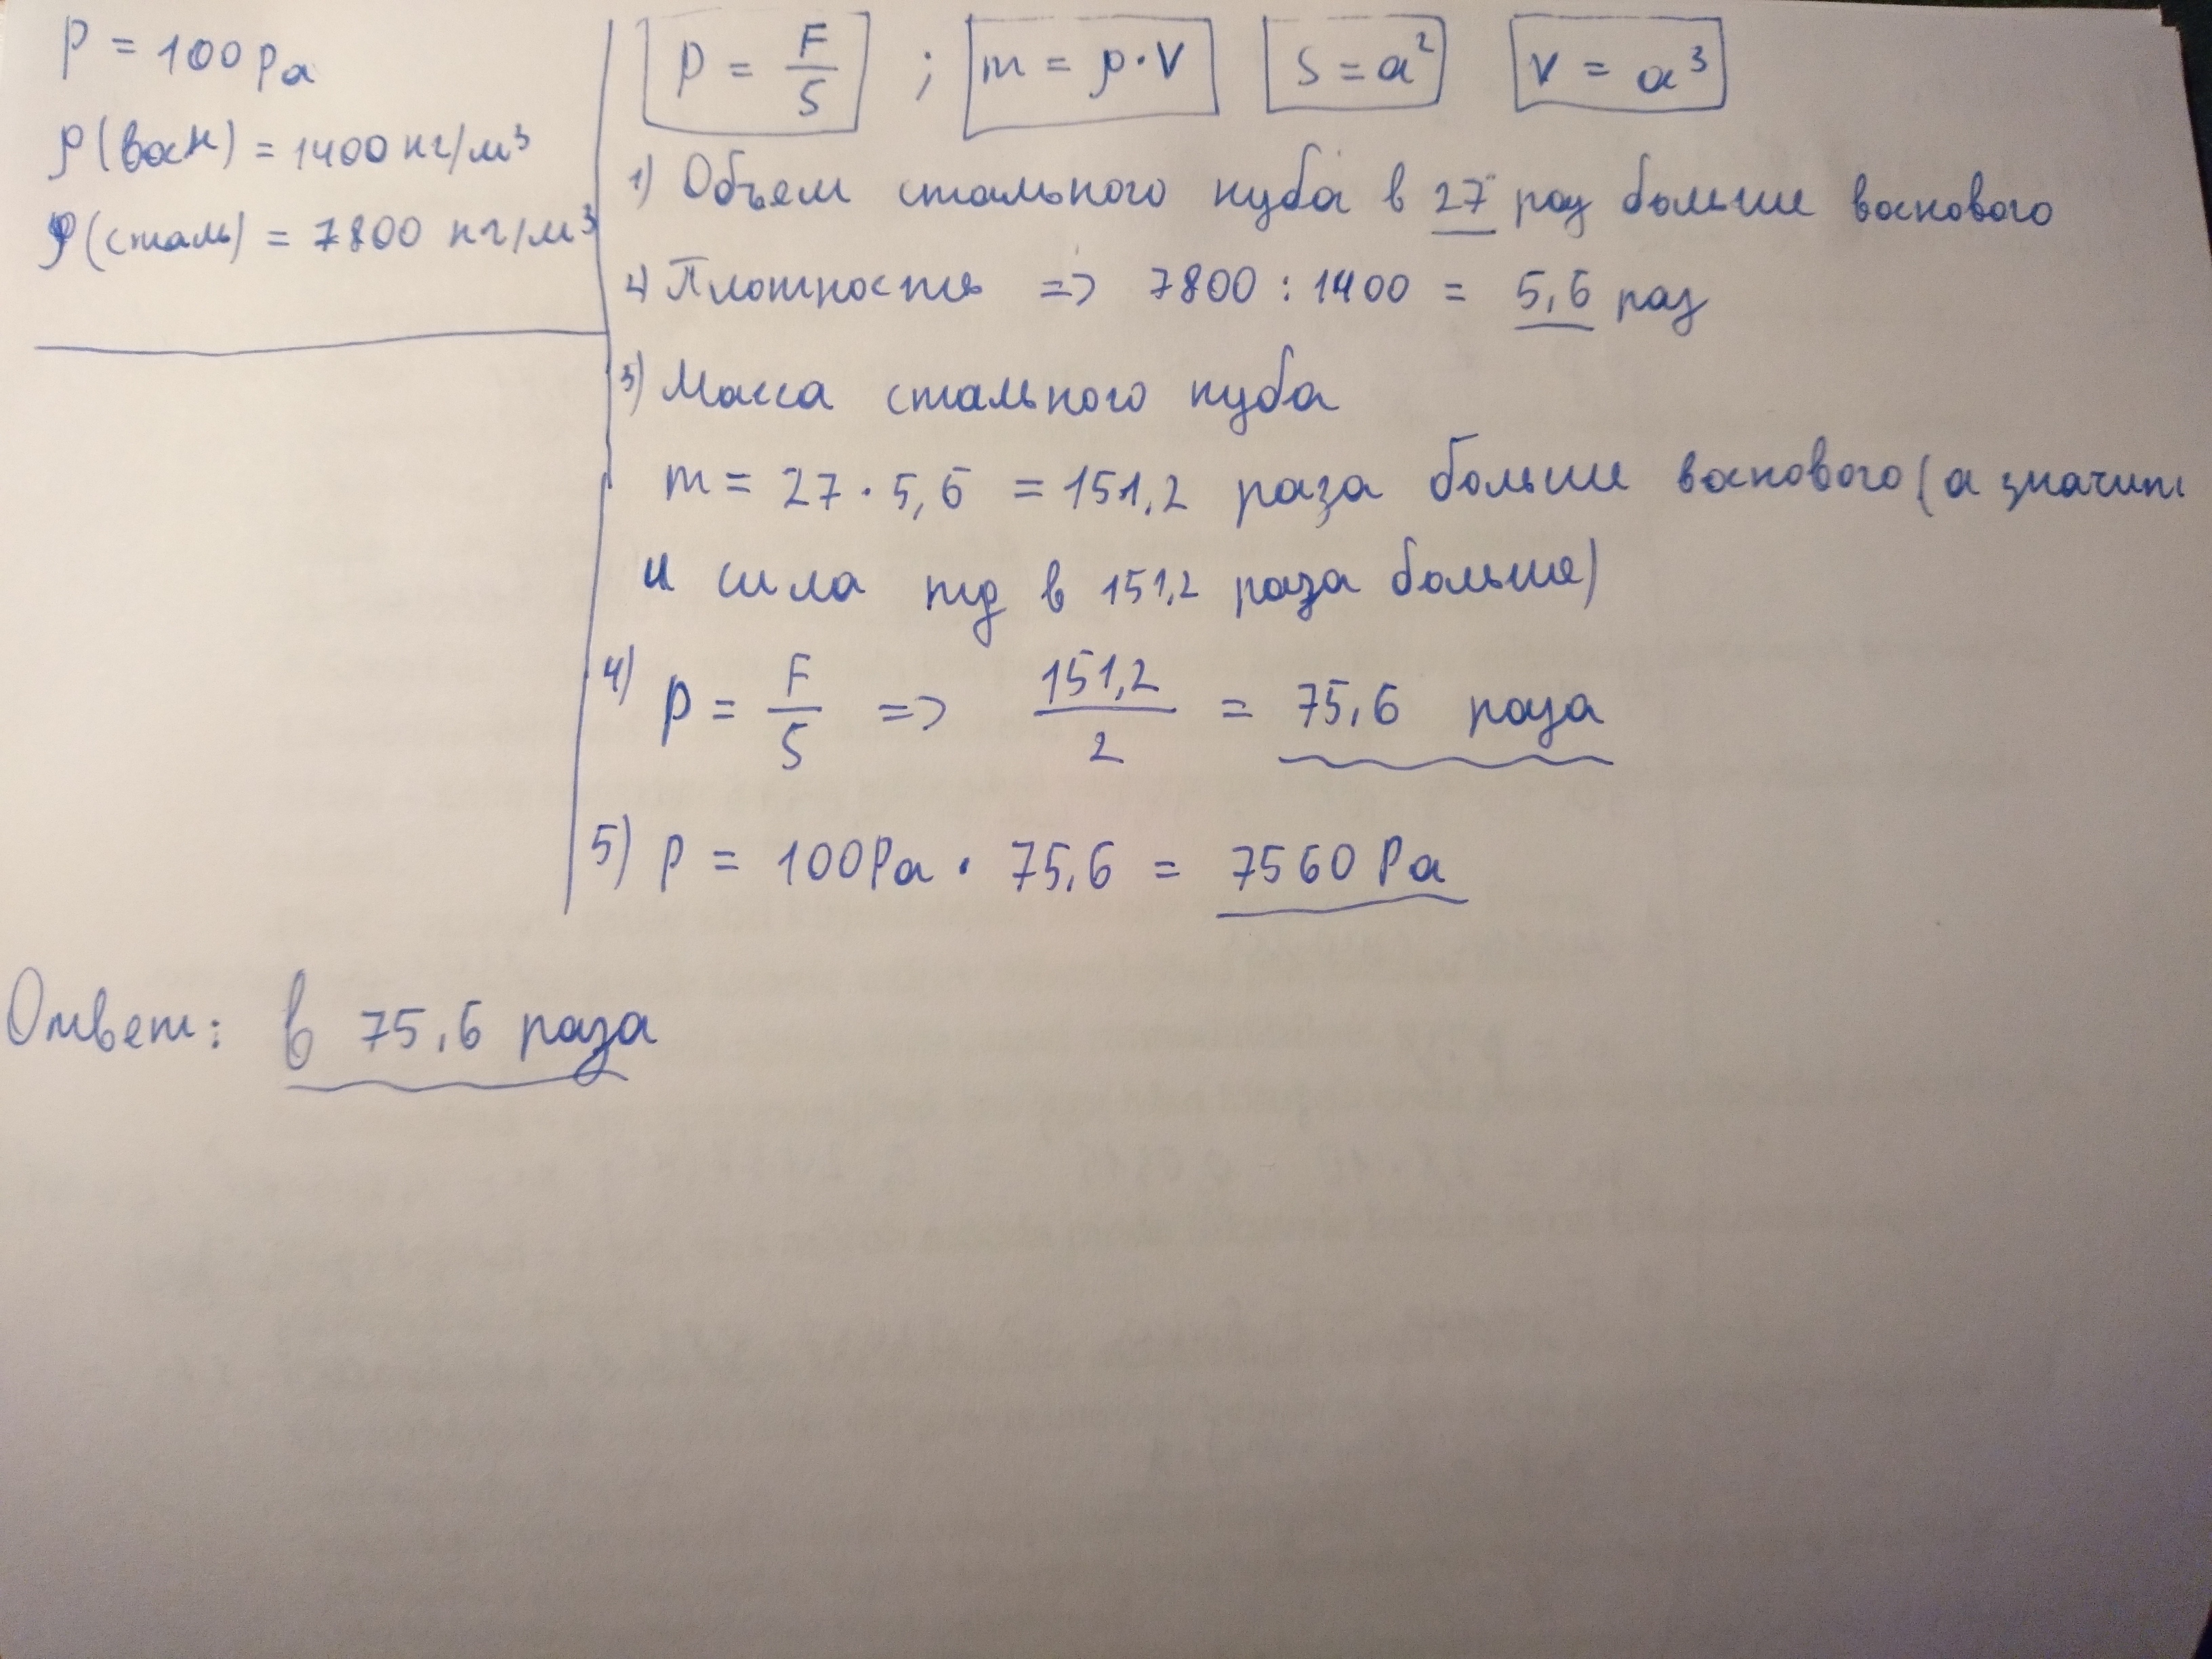 P = 100 Pa
ρ(воск) = 1400 кг/м³
ρ(сталь) = 7800 кг/м³
P = F/S ; m = ρ·V S = a² V = a³
1) Объем стального куба в 27 раз больше воскового
2) Плотность => 7800 : 1400 = 5,6 раз
3) Масса стального куба
m = 27 · 5,6 = 151,2 раза больше воскового (а значит
и сила mg в 151,2 раза больше)
4) P = F/S => 151,2/2 = 75,6 раза
5) P = 100 Pa · 75,6 = 7560 Pa
Ответ: в 75,6 раза